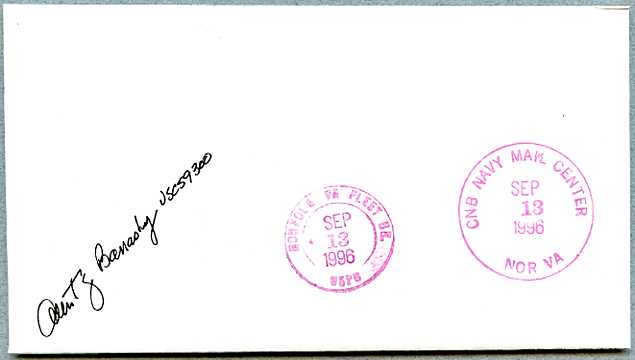 Banashy USCS9300
NORFOLK VA FLEET BR.
SEP
13
1996
USPS
CNB NAVY MAIL CENTER
SEP
13
1996
NOR VA